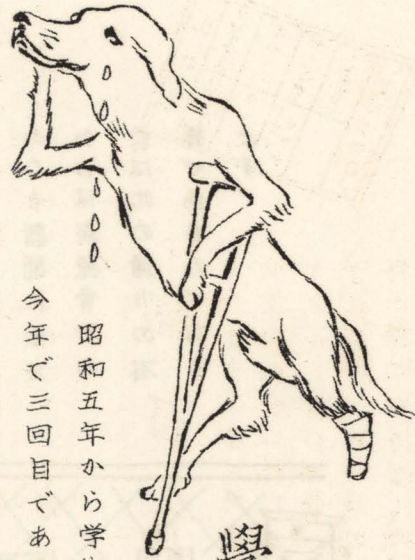 學
昭和五年から学
今年で三回目であ